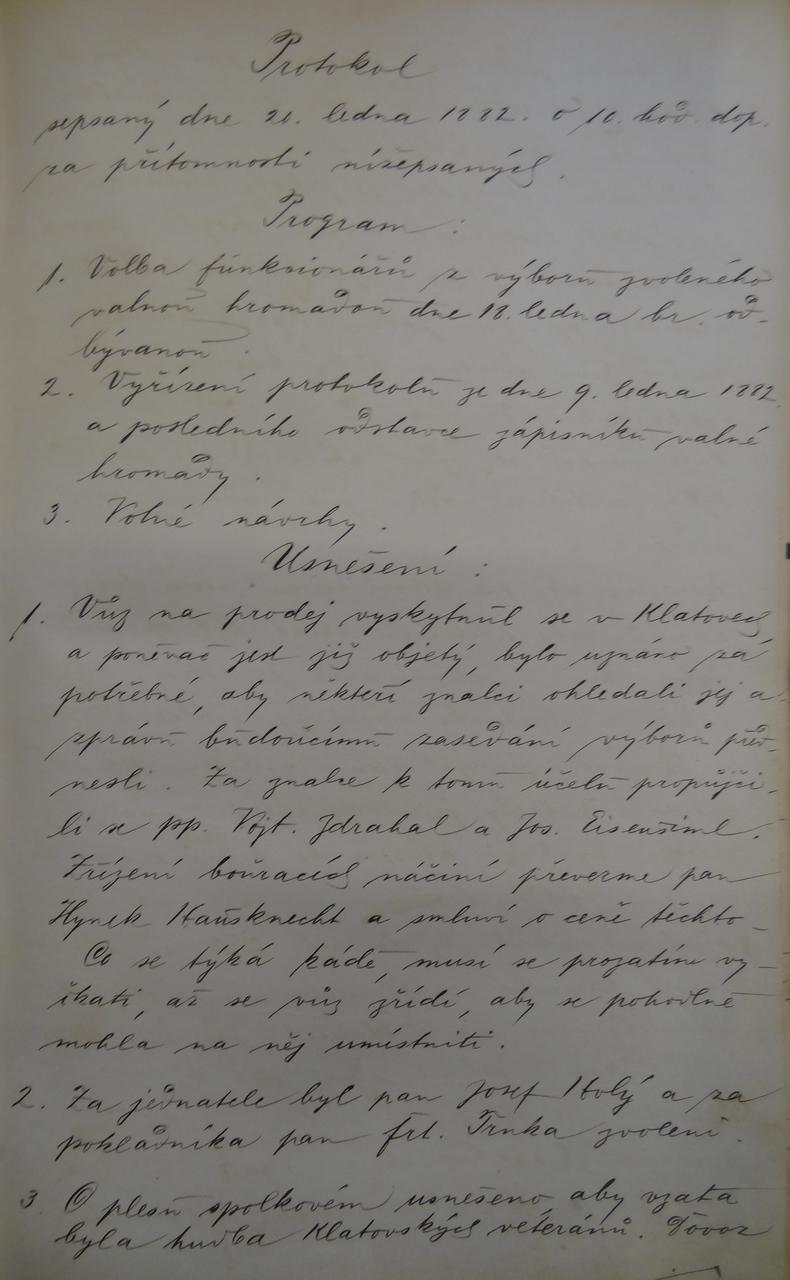 Protokol
sepsaný dne 20. ledna 1882. o 10. hod. dop.
za přítomnosti nížepsaných.
Program:
1. Volba funkcionářů z výboru zvoleného
valnou hromadou dne 18. ledna br. od-
bývanou.
2. Vyřízení protokolu ze dne 9. ledna 1882
a posledního odstavce zápisníku valné
hromady.
3. Volné návrhy.
Usnešení:
1. Vůz na prodej vyskytnul se v Klatovech
a poněvač jest již objetý, bylo uznáno za
potřebné, aby někteří znalci ohledali jej a
zprávu budoucímu zasedání výboru před-
nesli. Za znalce k tomu účelu propůjči-
li se pp. Vojt. Zdrahal a Jos. Eisenšiml.
Zřízení bouracích náčiní převezme pan
Hynek Hausknecht a smluví o ceně těchto
Co se týká kádě, musí se prozatím vy-
čkati, až se vůz zřídí, aby se pohodlně
mohla na něj umístniti.
2. Za jednatele byl pan Josef Holý a za
pokladníka pan Frt. Trnka zvoleni.
3 O plesu spolkovém usnešeno aby vzata
byla hudba Klatovských veteránů. Dovoz